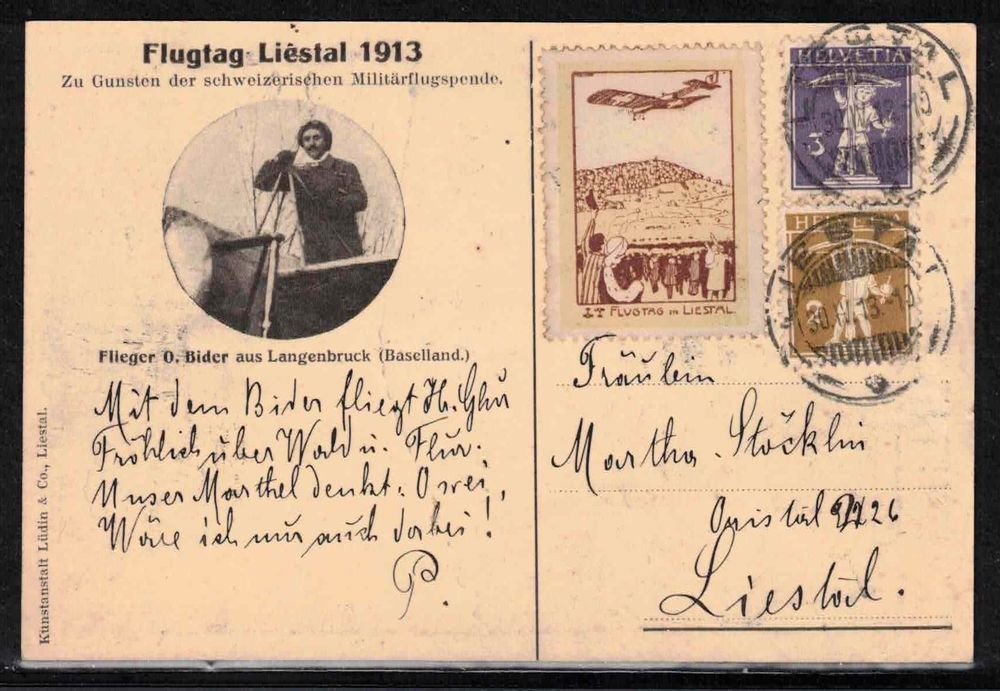 Flugtag Liestal 1913
Zu Gunsten der schweizerischen Militärflugspende.
Flieger O. Bider aus Langenbruck (Baselland.)
Mit dem Bider fliegt H. Glur
Fröhlich über Wald u. Flur.
Unser Marthel denkt: O wei,
Wäre ich nur auch dabei!
P.
Kunstanstalt Lüdin & Co., Liestal.
FLUGTAG IN LIESTAL
HELVETIA
3
HELVETIA
LIESTAL
LIESTAL
Fräulein
Martha Stöcklin
Oristal 226
Liestal.